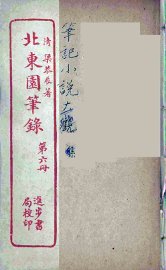 筆記小說
清 梁恭辰著
北東園筆錄
第六冊
進步書
局校印